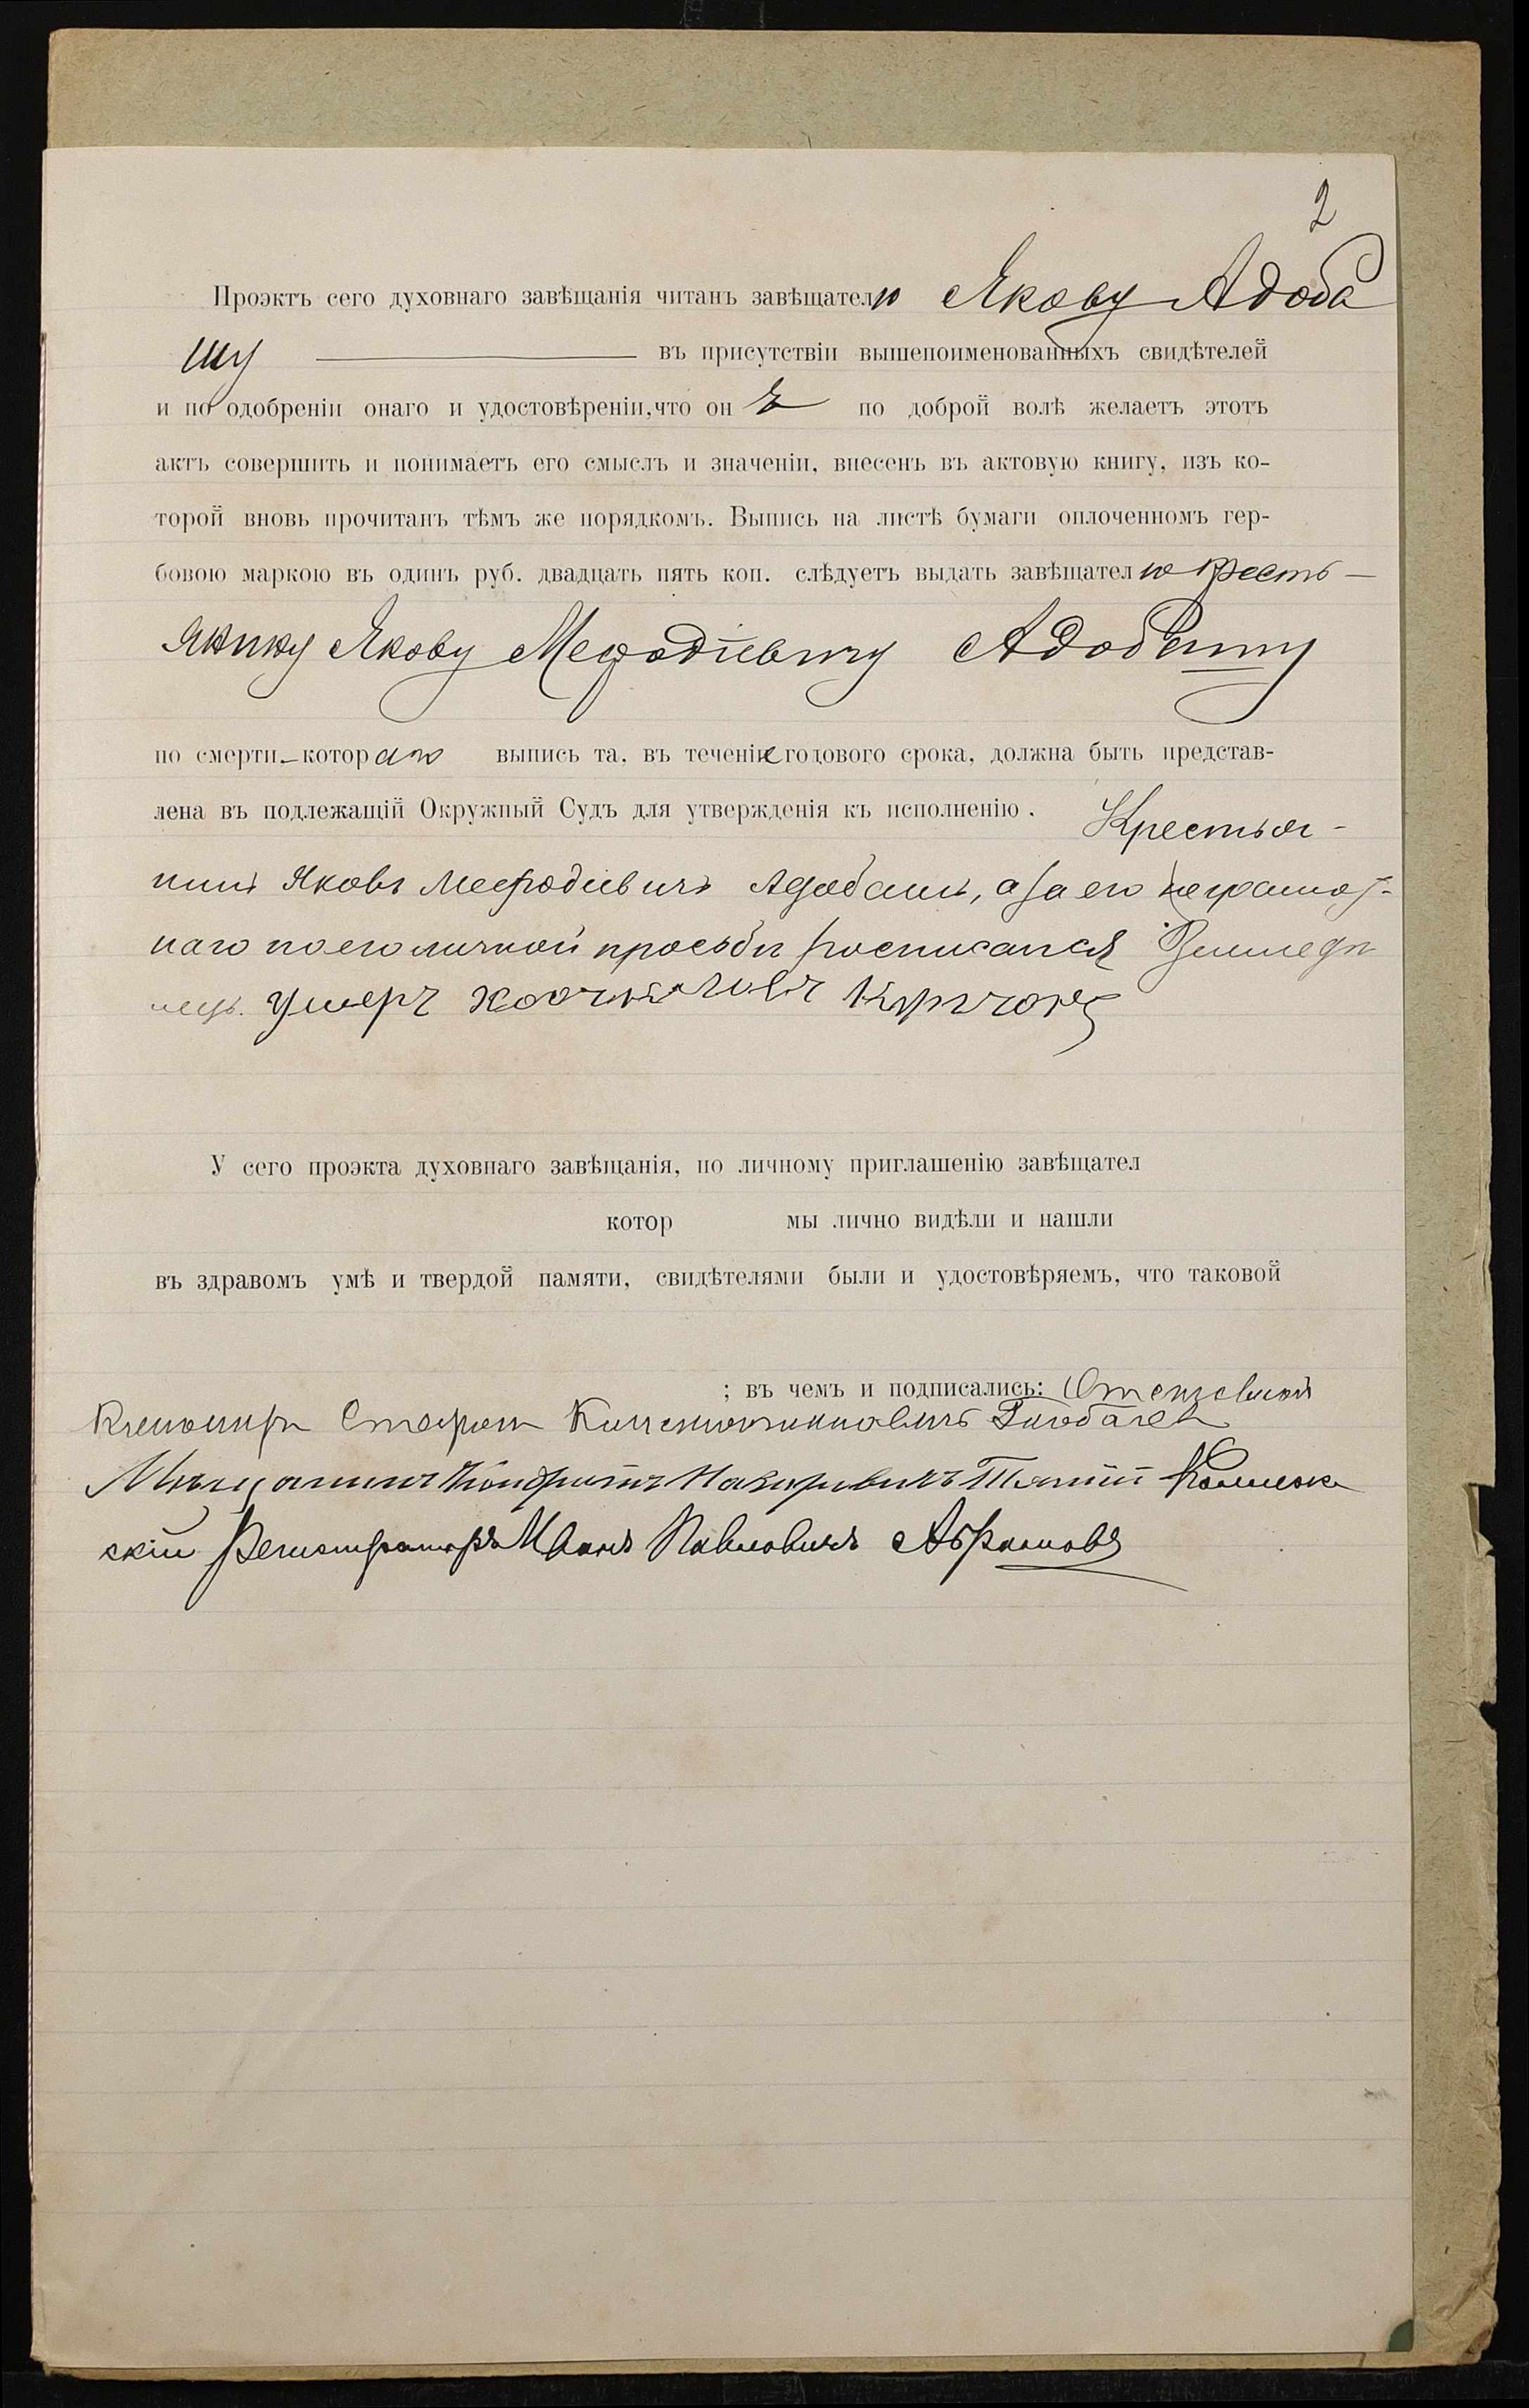 2
Проэктъ сего духовнаго завѣщанія читанъ завѣщателю Якову Адоба
шу въ присутствіи вышепоименованныхъ свидѣтелей
и по одобреніи онаго и удостовѣреніи, что онъ по доброй волѣ желаетъ этотъ
актъ совершить и понимаетъ его смыслъ и значеніи, внесенъ въ актовую книгу, изъ ко-
торой вновь прочитанъ тѣмъ же порядкомъ. Выпись на листѣ бумаги оплоченномъ гер-
бовою маркою въ одинъ руб. двадцать пять коп. слѣдуетъ выдать завѣщателю кресть-
янину Якову Мефодіевичу Адобашу
по смерти котораго выпись та, въ теченіе годового срока, должна быть представ-
лена въ подлежащій Окружный Судъ для утвержденія къ исполненію. Крестья-
нинъ Яковъ Мефодіевичъ Адобашъ, а за его неграмот-
наго по его личной просьбѣ росписался Земледѣ
лецъ
У сего проэкта духовнаго завѣщанія, по личному приглашенію завѣщател
котор мы лично видѣли и нашли
въ здравомъ умѣ и твердой памяти, свидѣтелями были и удостовѣряемъ, что таковой
; въ чемъ и подписались: Отставной
Мѣщанинъ Кондратъ Назаровичъ Коллеж
скій Регистраторъ Иванъ Павловичъ Абрамовъ